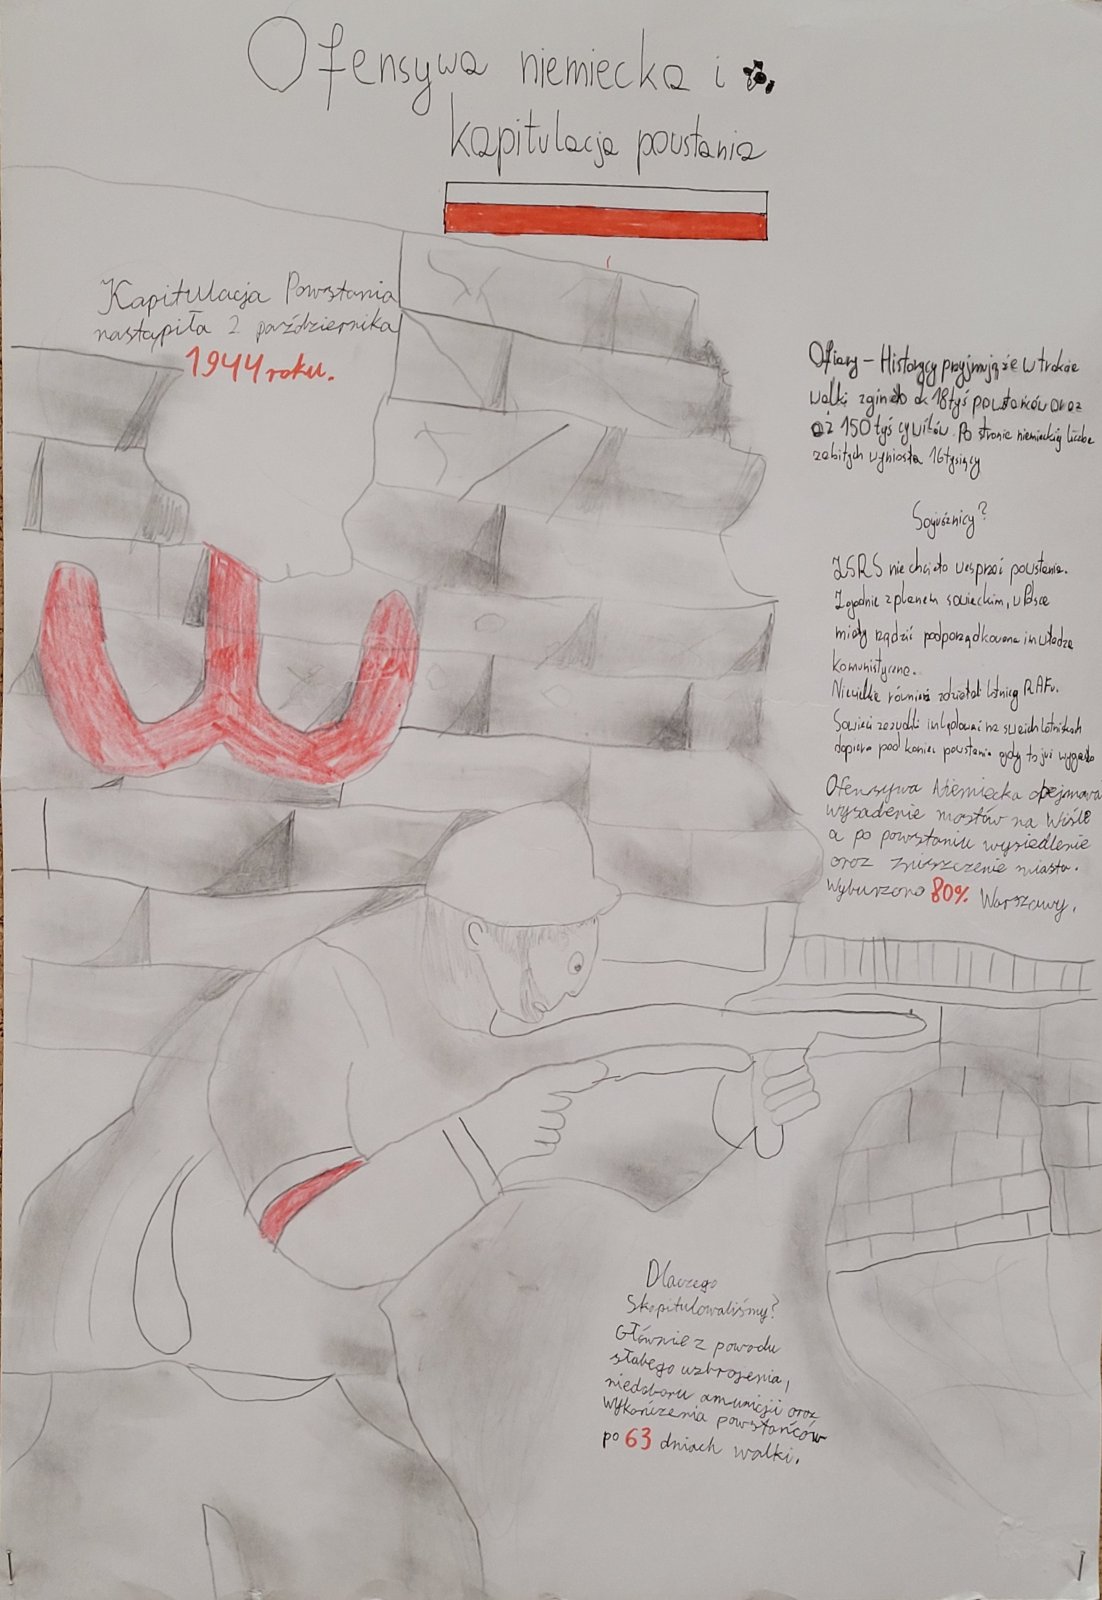 Ofensywa niemiecka i
kapitulacja powstania
Kapitulacja Powstania
nastąpiła 2 października
1944 roku.
Ofiary – Historycy przyjmują że w trakcie
walki zginęło ok 18 tyś powstańców oraz
aż 150 tyś cywilów. Po stronie niemieckiej liczba
zabitych wyniosła 16 tysięcy
Sojusznicy?
ZSRS nie chciało wesprzeć powstania.
Zgodnie z planem sowieckim, w Polsce
miały rządzić podporządkowane im władze
komunistyczne.
Niewielkie również zdziałał lotnicy RAFu.
Sowieci zezwolili im lądować na swoich lotniskach
dopiero pod koniec powstania gdy to już wygasło
Ofensywa Niemiecka obejmowała
wysadzenie mostów na Wiśle
a po powstaniu wysiedlenie
oraz zniszczenie miasta.
Wyburzono 80% Warszawy.
Dlaczego
Skapitulowaliśmy?
Głównie z powodu
słabego uzbrojenia,
niedoboru amunicji oraz
wykończenia powstańców
po 63 dniach walki.